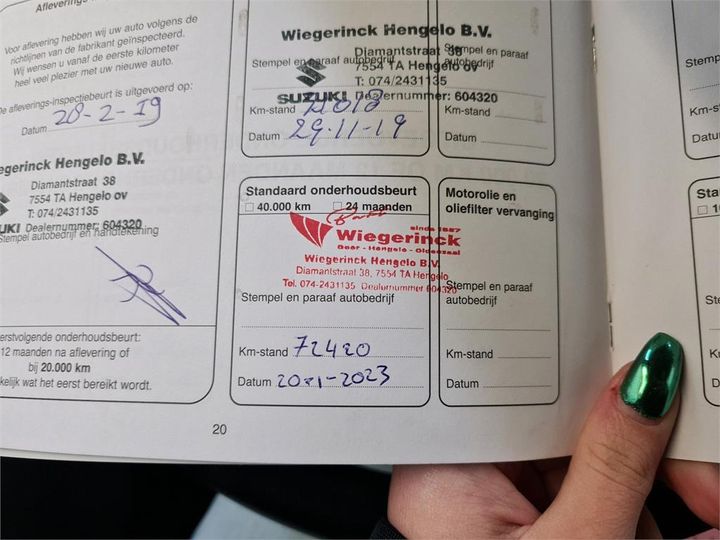 Afleverings
Voor aflevering hebben wij uw auto volgens de
richtlijnen van de fabrikant geïnspecteerd.
Wij wensen u vanaf de eerste kilometer
heel veel plezier met uw nieuwe auto.
De afleverings-inspectiebeurt is uitgevoerd op:
Datum 28-2-19
egerinck Hengelo B.V.
Diamantstraat 38
7554 TA Hengelo ov
T: 074/2431135
UKI Dealernummer: 604320
Stempel autobedrijf en handtekening
erstvolgende onderhoudsbeurt:
12 maanden na aflevering of
bij 20.000 km
kelijk wat het eerst bereikt wordt.
Wiegerinck Hengelo B.V.
Diamantstraat 38
Stempel en paraaf autobedrijf
7554 TA Hengelo ov
T: 074/2431135
SUZUKI Dealernummer: 604320
Km-stand
Datum 29-11-19
Stempel en paraaf
autobedrijf
Km-stand
Datum
Standaard onderhoudsbeurt
40.000 km 24 maanden
sinds 1887
Wiegerinck
Goor - Hengelo - Oldenzaal
Wiegerinck Hengelo B.V.
Diamantstraat 38, 7554 TA Hengelo
Tel. 074-2431135 Dealernummer 604320
Stempel en paraaf autobedrijf
Km-stand 72420
Datum 20-1-2023
Motorolie en
oliefilter vervanging
Stempel en paraaf
autobedrijf
Km-stand
Datum
20
Stemp
Km-st
Datum
Sta
Km-s
Datu